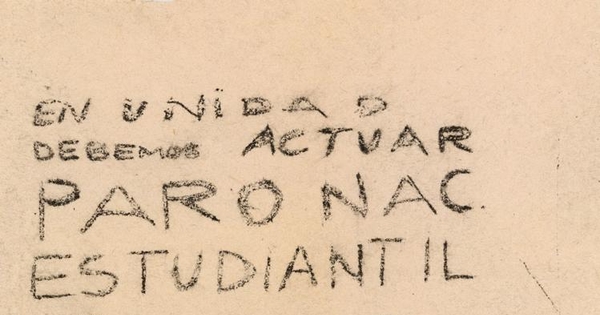 EN UNiDAD
DEBEMOS ACTUAR
PARO NAC.
ESTUDIANTIL